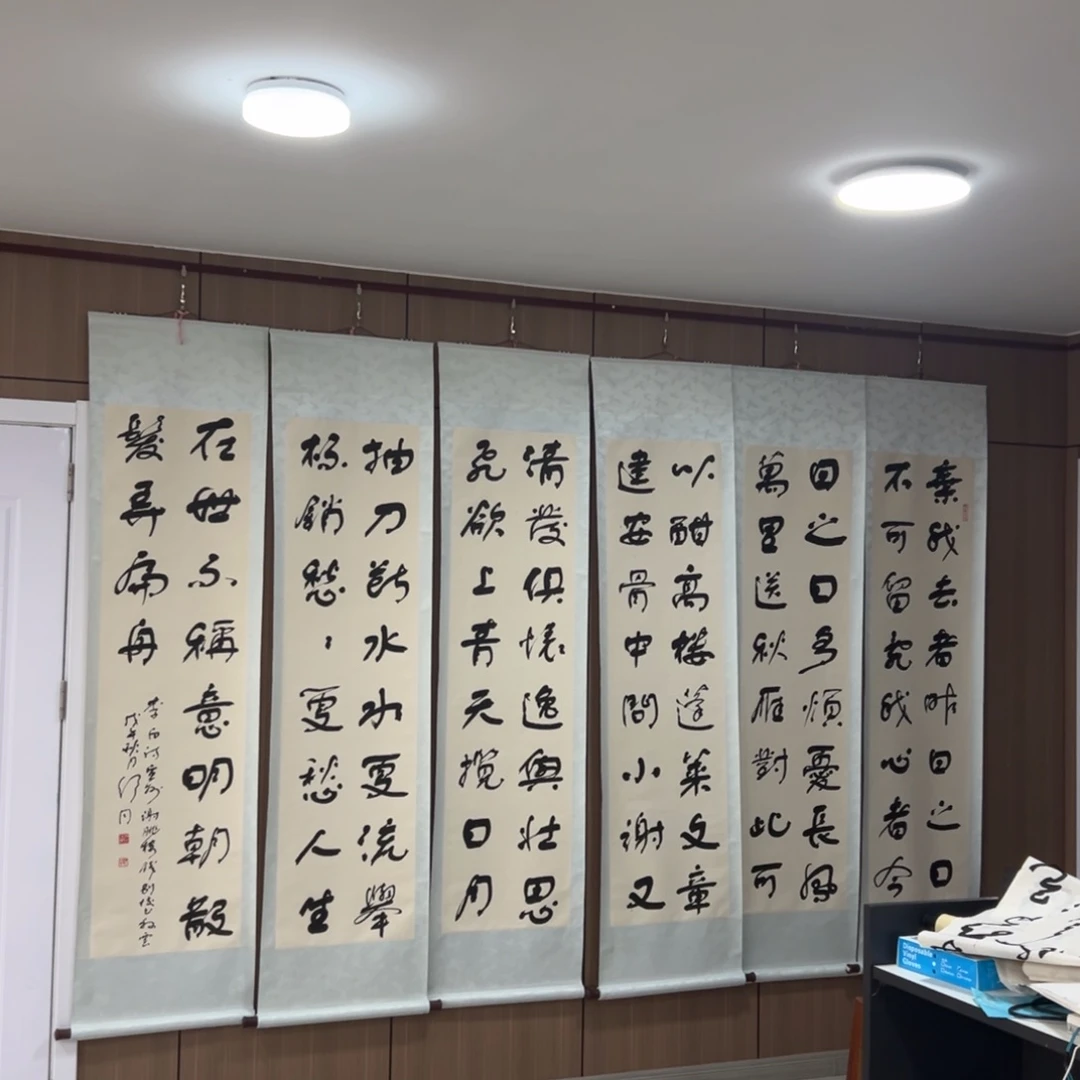 棄我去者昨日之日
不可留亂我心者今
日之日多煩憂長風
萬里送秋雁對此可
以酣高樓蓬萊文章
建安骨中間小謝又
清發俱懷逸興壯思
飛欲上青天攬日月
抽刀斷水水更流舉
杯銷愁、更愁人生
在世不稱意明朝散
髮弄扁舟
李白詩宣州謝朓樓餞別
秋月舒同
Disposable
Vinyl
Gloves